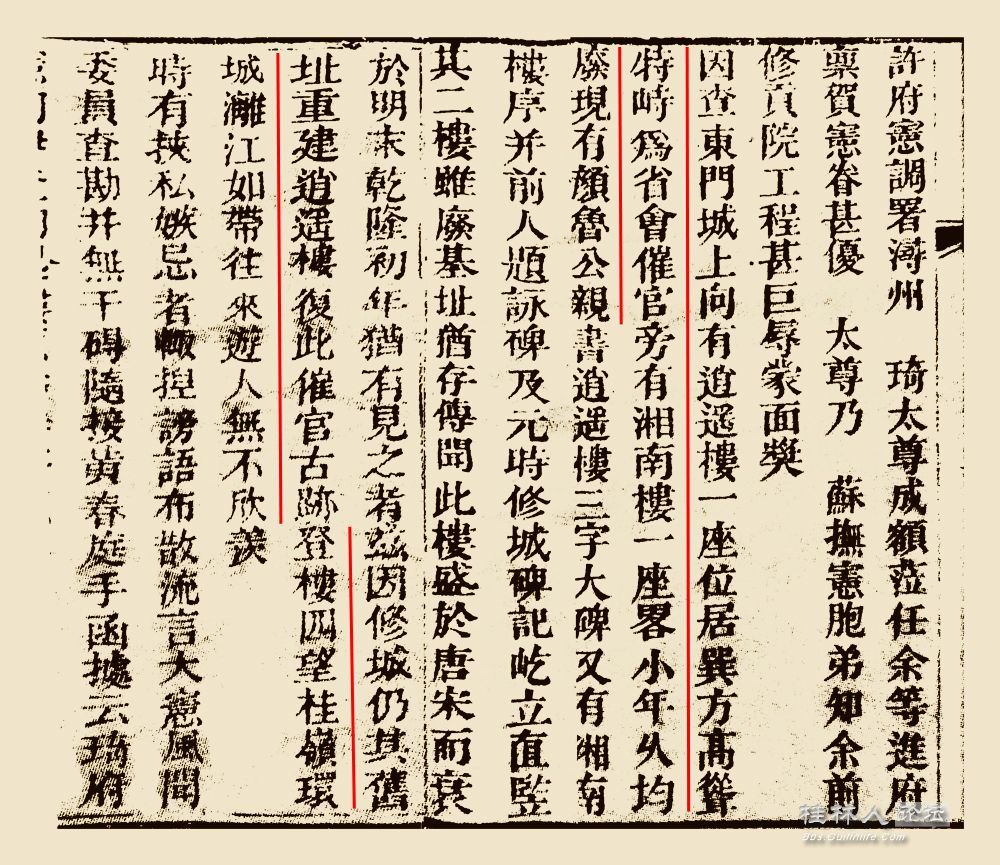 許府憲調署潯州　琦太尊成額蒞任余等進府
稟賀憲眷甚優　太尊乃　蘇撫憲胞弟知余前
修貢院工程甚巨辱蒙面奬
因查東門城上向有逍遥樓一座位居巽方高聳
特峙爲省會催官旁有湘南樓一座畧小年久均
廢現有顔魯公親書逍遥樓三字大碑又有湘南
樓序并前人題詠碑及元時修城碑記屹立直竪
其二樓雖廢基址猶存傳聞此樓盛於唐宋而衰
於明末乾隆初年猶有見之者兹因修城仍其舊
址重建逍遥樓復此催官古跡登樓四望桂嶺環
城灕江如帶往來遊人無不欣羨
時有挾私嫉忌者輙揑謗語布散流言大憲風聞
委員查勘并無干碍隨接黄春庭手函據云琦府
桂林人论坛
bbs.guilinlife.com